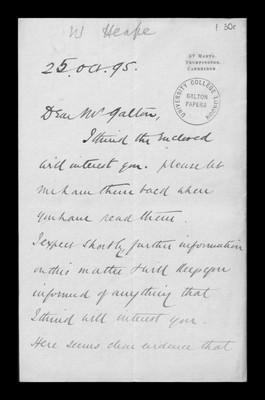 W Heape
1 30c
ST MARYS,
TRUMPINGTON,
CAMBRIDGE
25 Oct. 95.
UNIVERSITY COLLEGE LONDON
GALTON
PAPERS
Dear Mr Galton,
I think the enclosed
will interest you. please let
me have them back when
you have read them.
I expect shortly further information
on this matter & will keep you
informed of anything that
I think will interest you.
Here seems clear evidence that